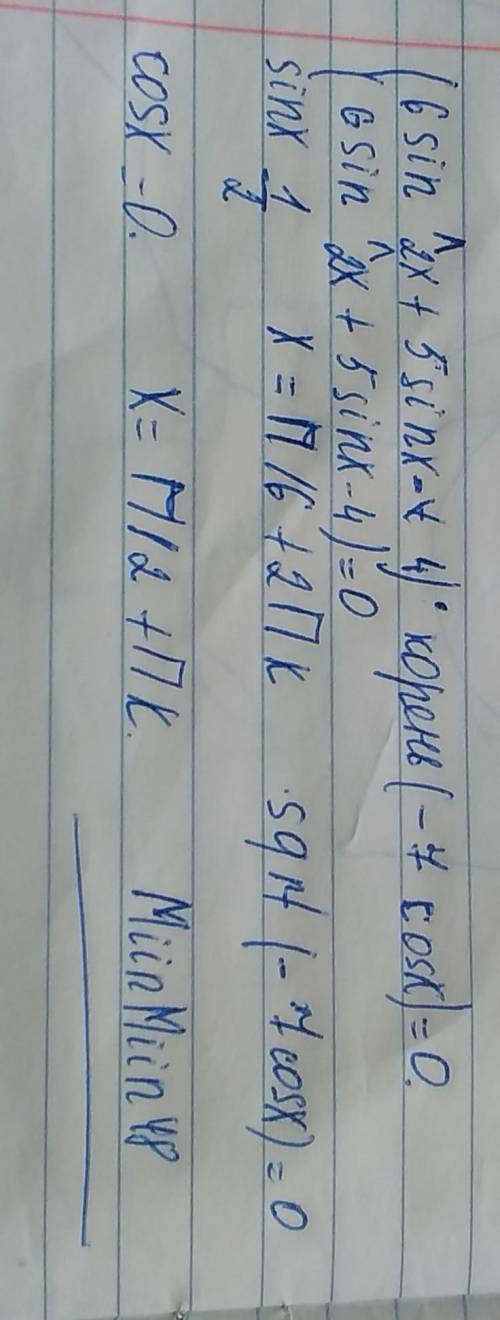 (6 sin ^2x + 5 sinx - 4) · корень (-7 cosx) = 0.
(6 sin ^2x + 5 sinx - 4) = 0
sinx 1/2 x = П/6 + 2Пk sqrt (-7cosx) = 0
cosx = 0. x = П/2 + Пk. MiinMiin48